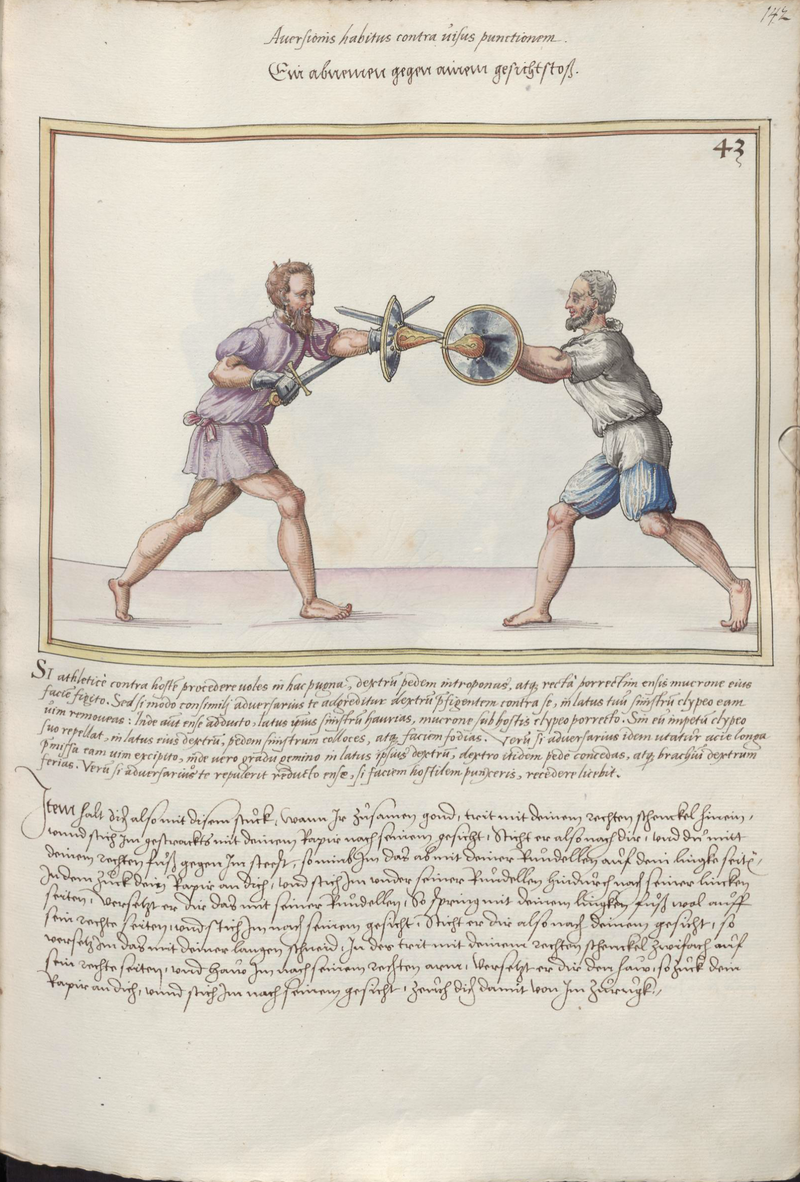 142
Aversionis habitus contra visus punctionem.
Ein abnemen gegen ainem gesichtstoß.
43
SI athleticè contra hostẽ procedere voles in hac pugna, dextrũ pedem introponas, atq; recta porrectim ensis mucrone eius
faciẽ figito. Sed si modo consimili adversarius te adgreditur dextrũ p̃figentem contra se, in latus tuũ sinistrũ clypeo eam
vim removeas: Inde aũt ense adducto, latus ipsius sinistrũ haurias, mucrone sub hostis clypeo porrecto. Sin eũ impetũ clypeo
suo repellat, in latus eius dextrũ, pedem sinistrum colloces, atq; faciem fodias. Verũ si adversarius idem utatur acie longa
p̃missa eam vim excipito, inde vero gradu gemino in latus ipsius dextrũ, dextro itidem pede concedas, atq; brachiũ dextrum
ferias. Verũ si adversarius te repulerit reducto ense, si faciem hostilem punxeris, recedere licebit.
Item halt dich also mit disem stuck, wann Ir zůsamen gond, trit mit deinem rechten schenckel hinein,
unnd stich Im gestrackts mit deinem Rapir nach seinem gesicht, Sticht er also nach dir, und du mitt
deinem rechten fůß gegen Im steest, so nimb Im das ab mit deiner Rundellen auf dein lingke seitẽ,
Indem zuck dein Rapir an dich, und stich Im under seiner Rundellen hindurch nach seiner lincken
seiten, versetzt er dir das mit seiner Rundellen, So spring mit deinem lingken fůß wol auff
sein rechte seiten, und stich Im nach seinem gesicht, Sticht er dir also nach deinem gesicht, so
versetz Im das mit deiner langen schneid, In des trit mit deinem rechten schenckel zwifach auf
sein rechte seiten, und haw Im nach seinem rechten arm, versetzt er dir den haw, so zuck dein
Rapir an dich, unnd stich Im nach seinem gesicht, Zeuch dich damit von Im zůrugk.